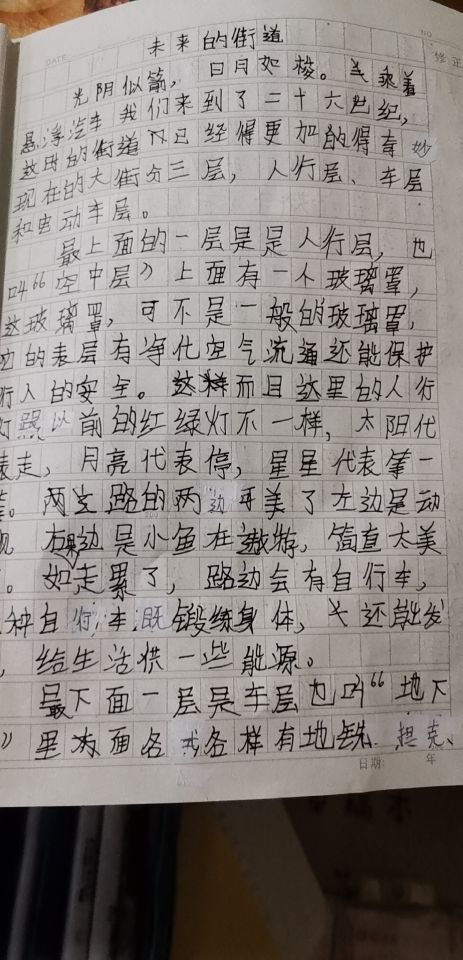 未来的街道
DATE
NO
修正
光阴似箭，日月如梭。当乘着
悬浮汽车我们来到了二十六世纪，
这时的街道以已经得更加的得奇妙
现在的大街分三层，人行层、车层
和电动车层。
最上面的一层是是人行层，也
叫“空中层”上面有一个玻璃罩，
这玻璃罩，可不是一般的玻璃罩，
它的表层有净化空气流通还能保护
行人的安全。这样而且这里的人行
灯跟以前的红绿灯不一样，太阳代
表走，月亮代表停，星星代表等一
等。两支路的两边可美了左边是动
右边是小鱼在遨游，简直太美
。如果走累了，路边会有自行车，
种自行车，既锻练身体，还能发
，给生活供一些能源。
最下面一层是车层也叫“地下
”里面各式各样有地铁、坦克、
日期: 年